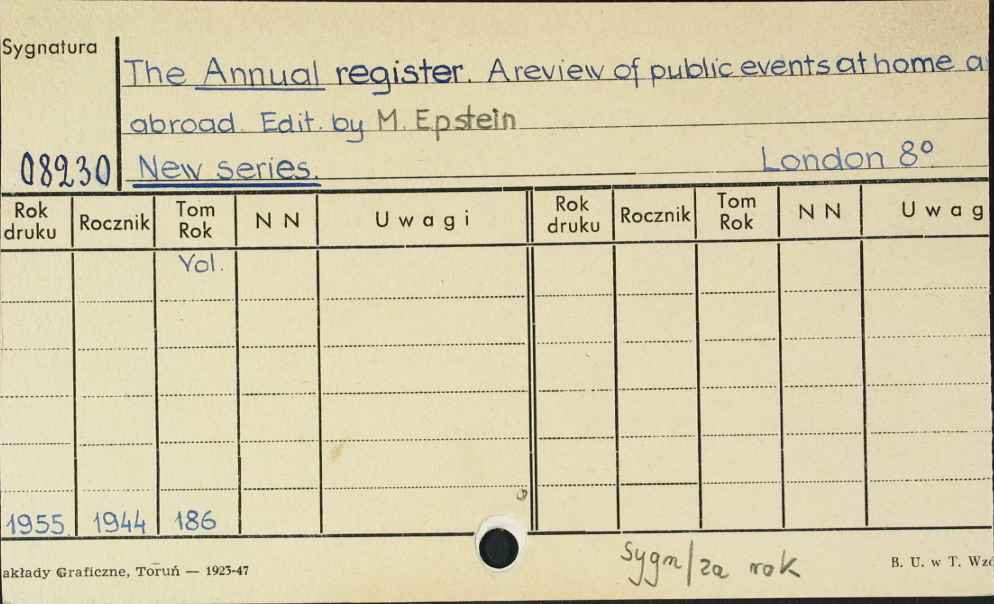 Sygnatura
The Annual register. A review of public events at home a
abroad. Edit. by M. Epstein
08230 New series. London 8°
Rok druku Rocznik Tom Rok N N Uwagi Rok druku Rocznik Tom Rok N N Uwag
Vol.
1955 1944 186
akłady Graficzne, Toruń — 1923-47
Sygn/za rok
B. U. w T. Wzó